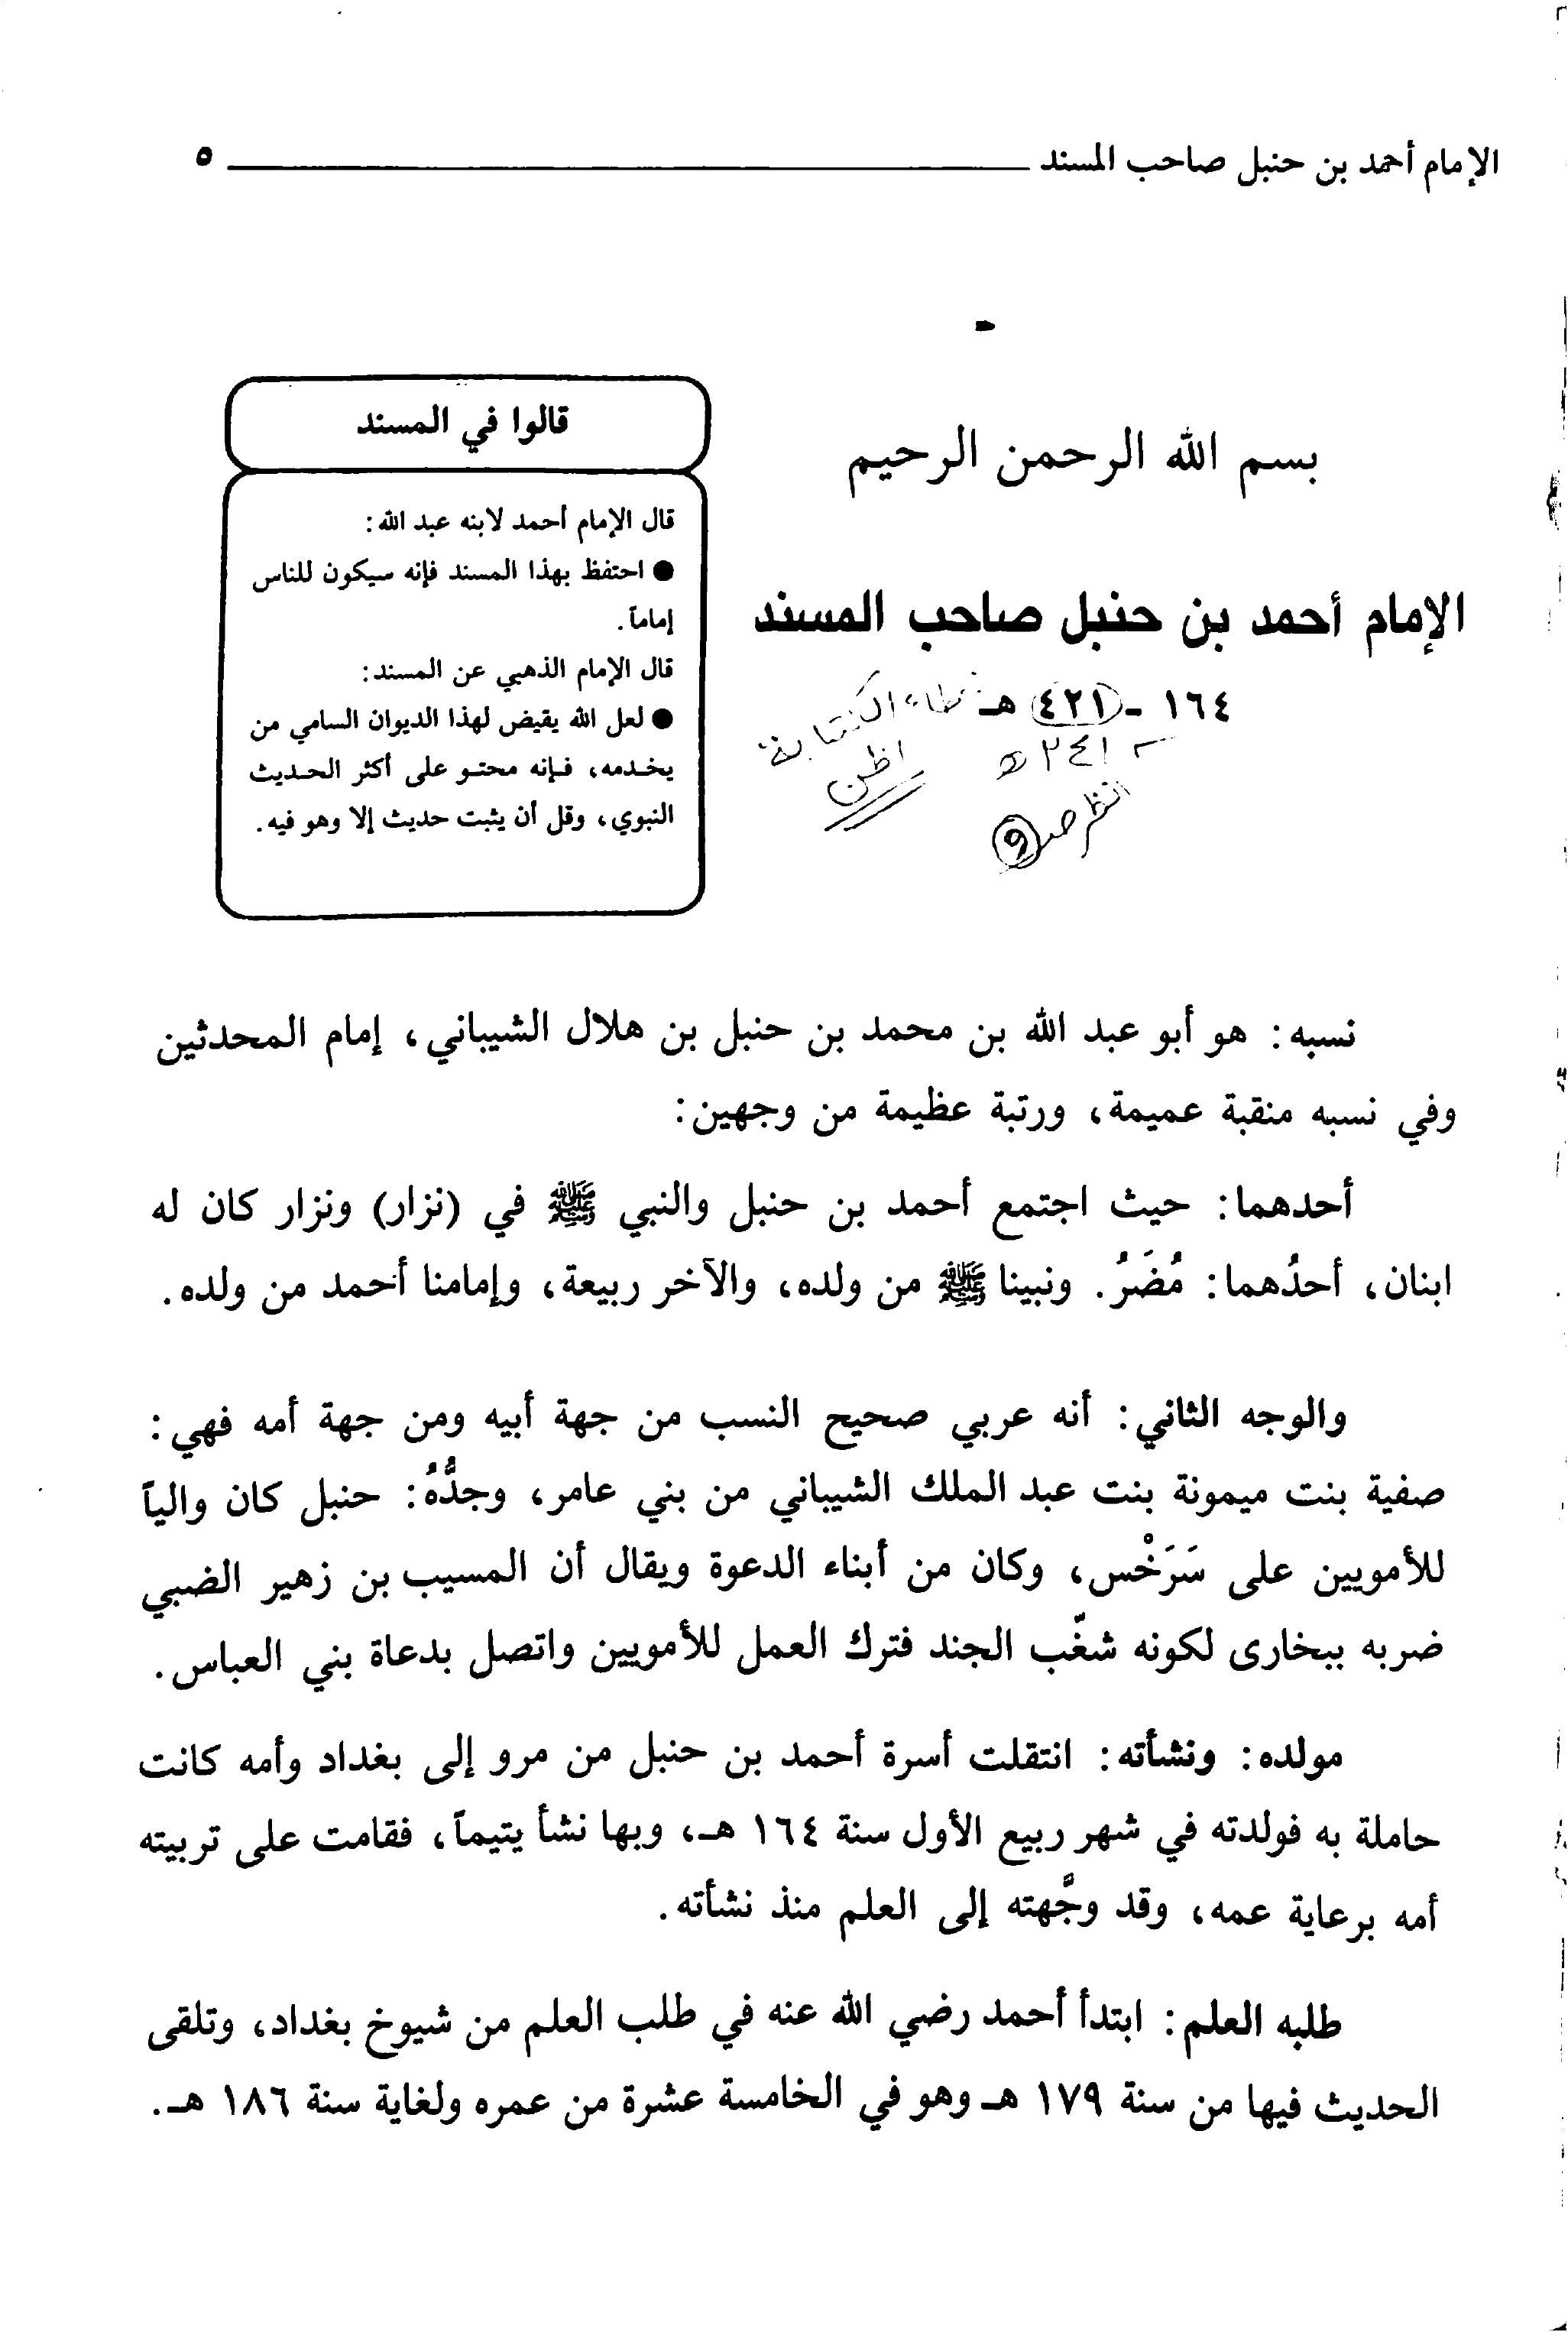 الإمام أحمد بن حنبل صاحب المسند ٥
بسم الله الرحمن الرحيم
الإمام أحمد بن حنبل صاحب المسند
١٦٤ - ٤٢١ هـ
٢٤١ هـ
انظر صـ ٩
خطاء الكتابة
اظن
قالوا في المسند
قال الإمام أحمد لابنه عبد الله:
● احتفظ بهذا المسند فإنه سيكون للناس
إماماً.
قال الإمام الذهبي عن المسند:
● لعل الله يقيض لهذا الديوان السامي من
يخدمه، فإنه محتو على أكثر الحديث
النبوي، وقل أن يثبت حديث إلا وهو فيه.
نسبه: هو أبو عبد الله بن محمد بن حنبل بن هلال الشيباني، إمام المحدثين
وفي نسبه منقبة عميمة، ورتبة عظيمة من وجهين:
أحدهما: حيث اجتمع أحمد بن حنبل والنبي ﷺ في (نزار) ونزار كان له
ابنان، أحدُهما: مُضَرُ. ونبينا ﷺ من ولده، والآخر ربيعة، وإمامنا أحمد من ولده.
والوجه الثاني: أنه عربي صحيح النسب من جهة أبيه ومن جهة أمه فهي:
صفية بنت ميمونة بنت عبد الملك الشيباني من بني عامر، وجدُّهُ: حنبل كان والياً
للأمويين على سَرَخْس، وكان من أبناء الدعوة ويقال أن المسيب بن زهير الضبي
ضربه ببخارى لكونه شغّب الجند فترك العمل للأمويين واتصل بدعاة بني العباس.
مولده: ونشأته: انتقلت أسرة أحمد بن حنبل من مرو إلى بغداد وأمه كانت
حاملة به فولدته في شهر ربيع الأول سنة ١٦٤ هـ، وبها نشأ يتيماً، فقامت على تربيته
أمه برعاية عمه، وقد وجَّهته إلى العلم منذ نشأته.
طلبه العلم: ابتدأ أحمد رضي الله عنه في طلب العلم من شيوخ بغداد، وتلقى
الحديث فيها من سنة ١٧٩ هـ وهو في الخامسة عشرة من عمره ولغاية سنة ١٨٦ هـ.